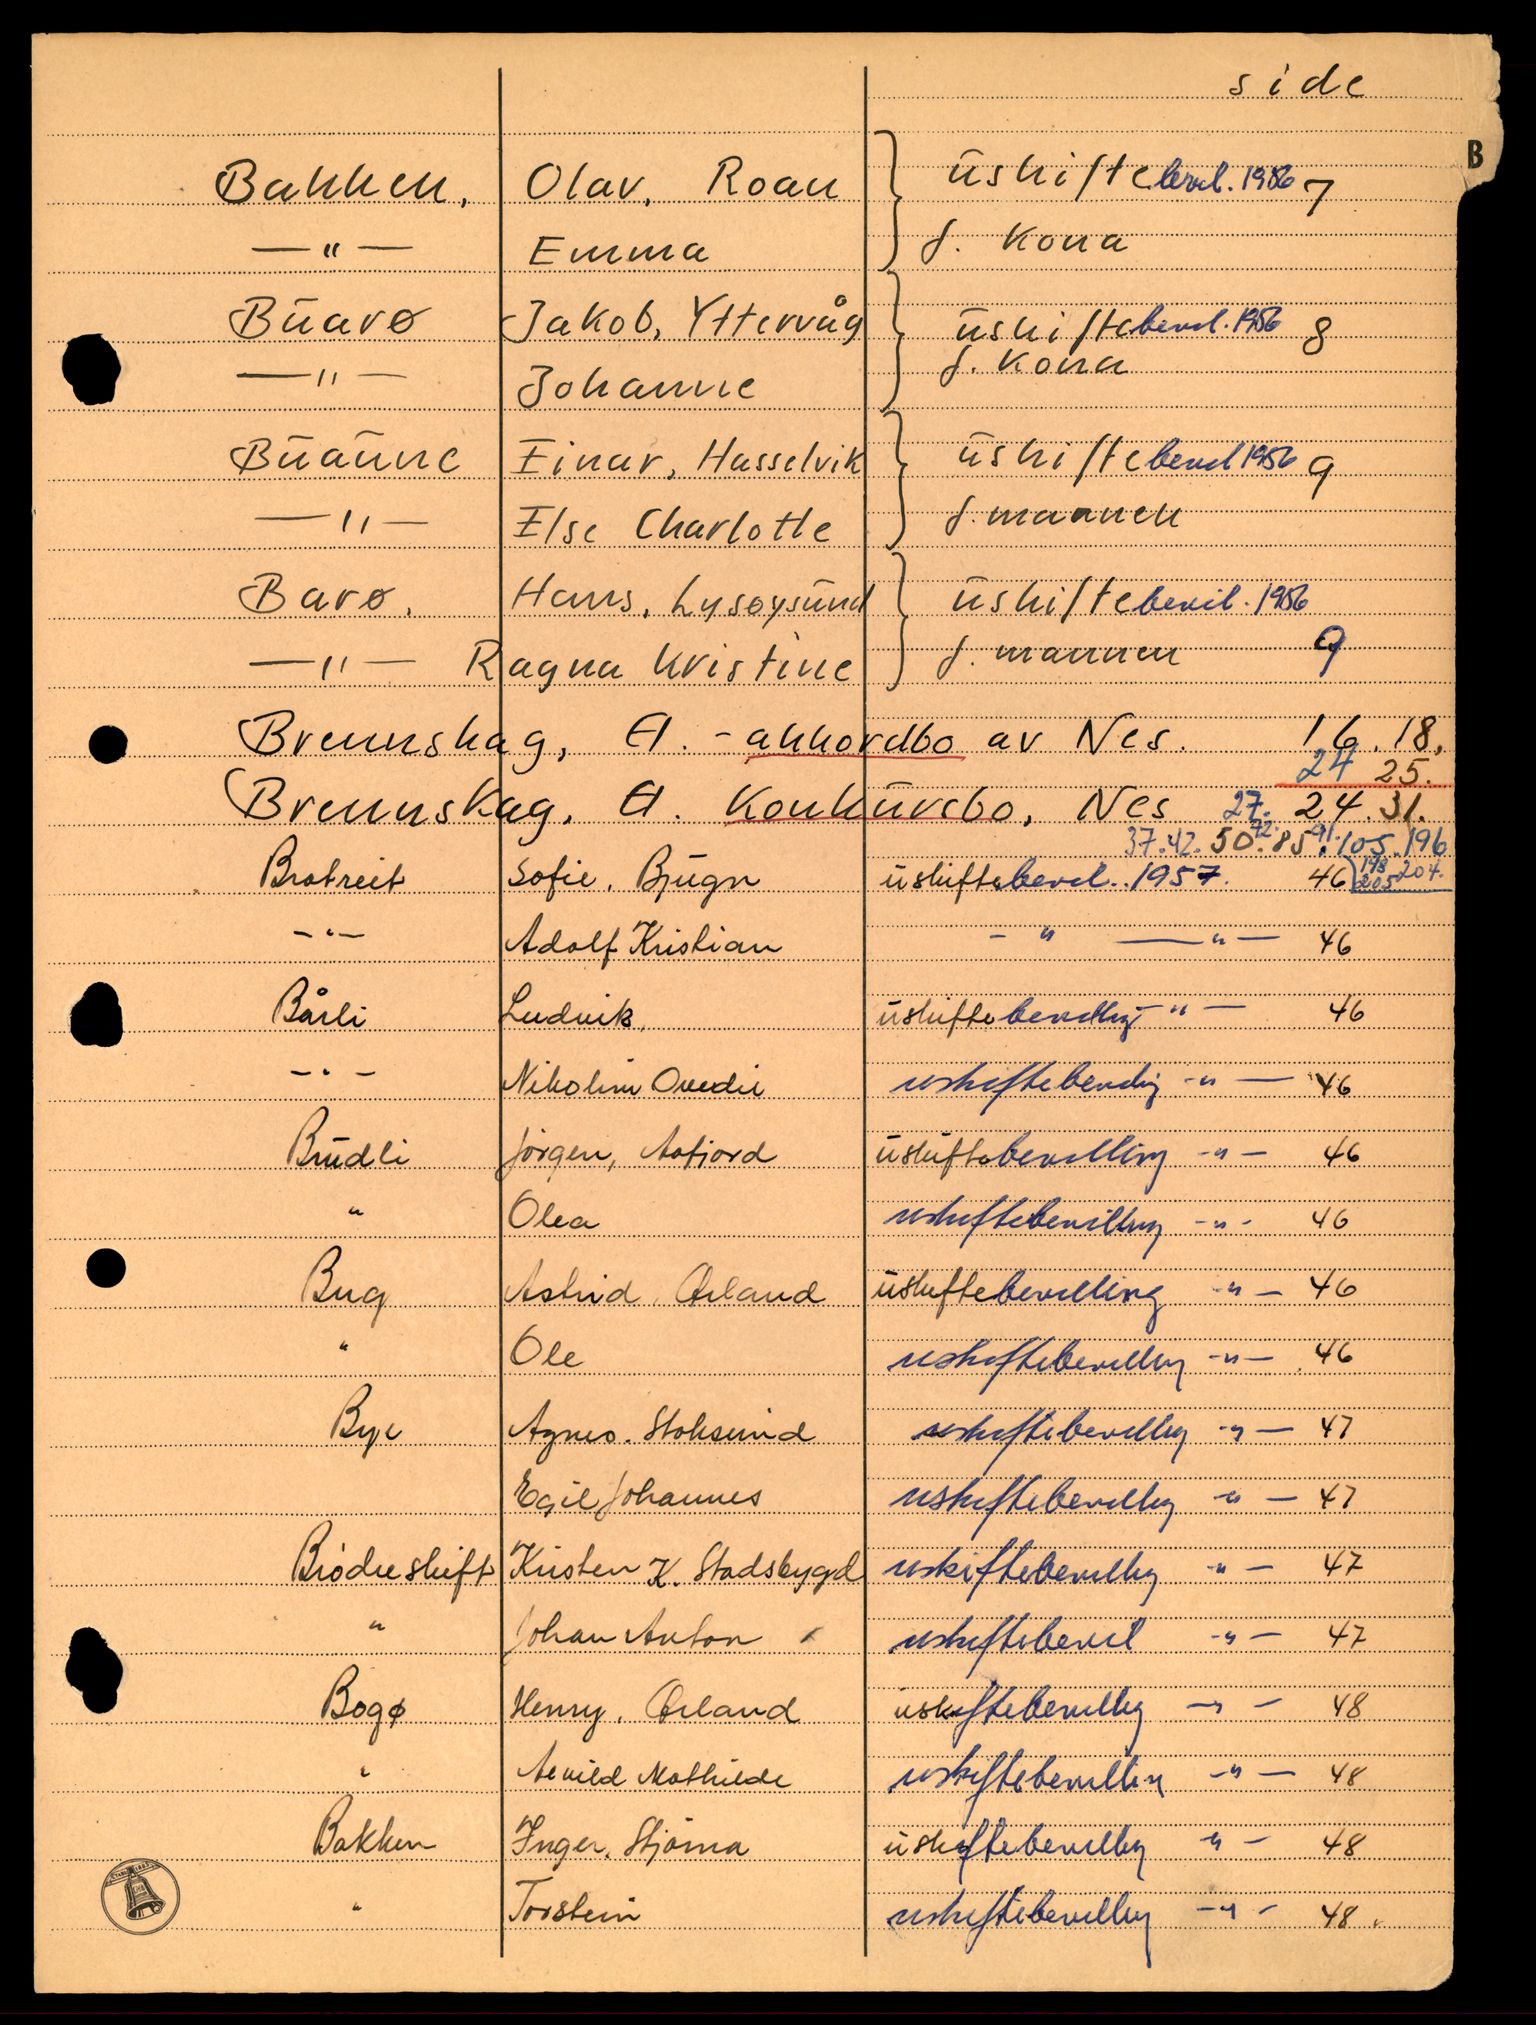 side
B
Bakken, Olav, Roan uskiftebevil. 1956 7
—"— Emma f. Kona
Buarø Jakob, Yttervåg uskiftebevil. 1956 8
—"— Johanne f. Kona
Buaune Einar, Hasselvik uskiftebevil 1956 9
—"— Else Charlotte f. mannen
Barø, Hans, Lysøysund uskiftebevil. 1956
—"— Ragna Kristine f. mannen 9
Brennskag, A. - akkordbo av Nes. 16. 18.
24 25.
Brennskag, A. Konkursbo, Nes 27. 24. 31.
37. 42. 50. 72. 85. 91. 105. 196
Brotreit Sofie, Bjugn uskiftebevil. 1957. 46 198 204. 205
-"- Adolf Kristian - " —"— 46
Bårli Ludvik, uskiftebevillig -"- 46
-"- Nikoline Ovedie uskiftebevillig -"- 46
Brudli Jörgen, Aafjord uskiftebevilling -"- 46
" Olea uskiftebevilling -"- 46
Bug Astrid, Ørland uskiftebevilling -"- 46
" Ole uskiftebevilling -"- 46
Bye Agnes. Stoksund uskiftebevilling -"- 47
Egil Johannes uskiftebevilling -"- 47
Brödreskift Kristen K. Stadsbygd uskiftebevilling -"- 47
" Johan Anton uskiftebevil -"- 47
Bogø Henry, Ørland uskiftebevilling -"- 48
" Mathilde uskiftebevilling -"- 48
Bakken Inger, Stjörna uskiftebevilling -"- 48
" Torstein uskiftebevilling -"- 48.